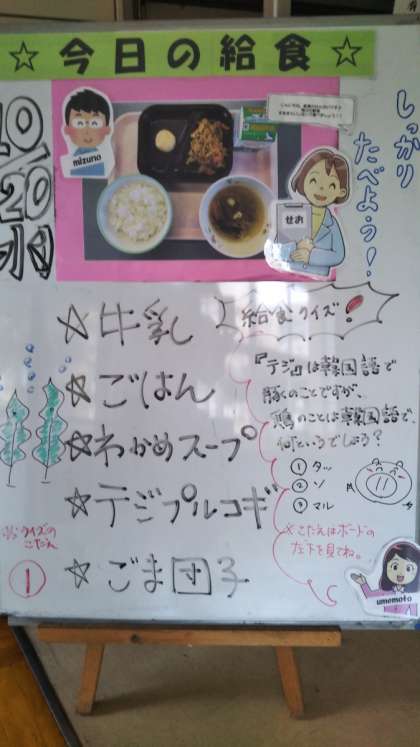 ☆今日の給食☆
10/20
水
mizuno
せお
しっかり
たべよう!
☆牛乳
☆ごはん
☆わかめスープ
☆デジプルコギ
☆ごま団子
給食クイズ!
『テジ』は韓国語で
豚のことですが、
鶏のことは韓国語で、
何というでしょう?
①タッ
②ソ
③マル
※こたえはボードの
左下を見てね。
クイズの
こたえ
①
umemoto